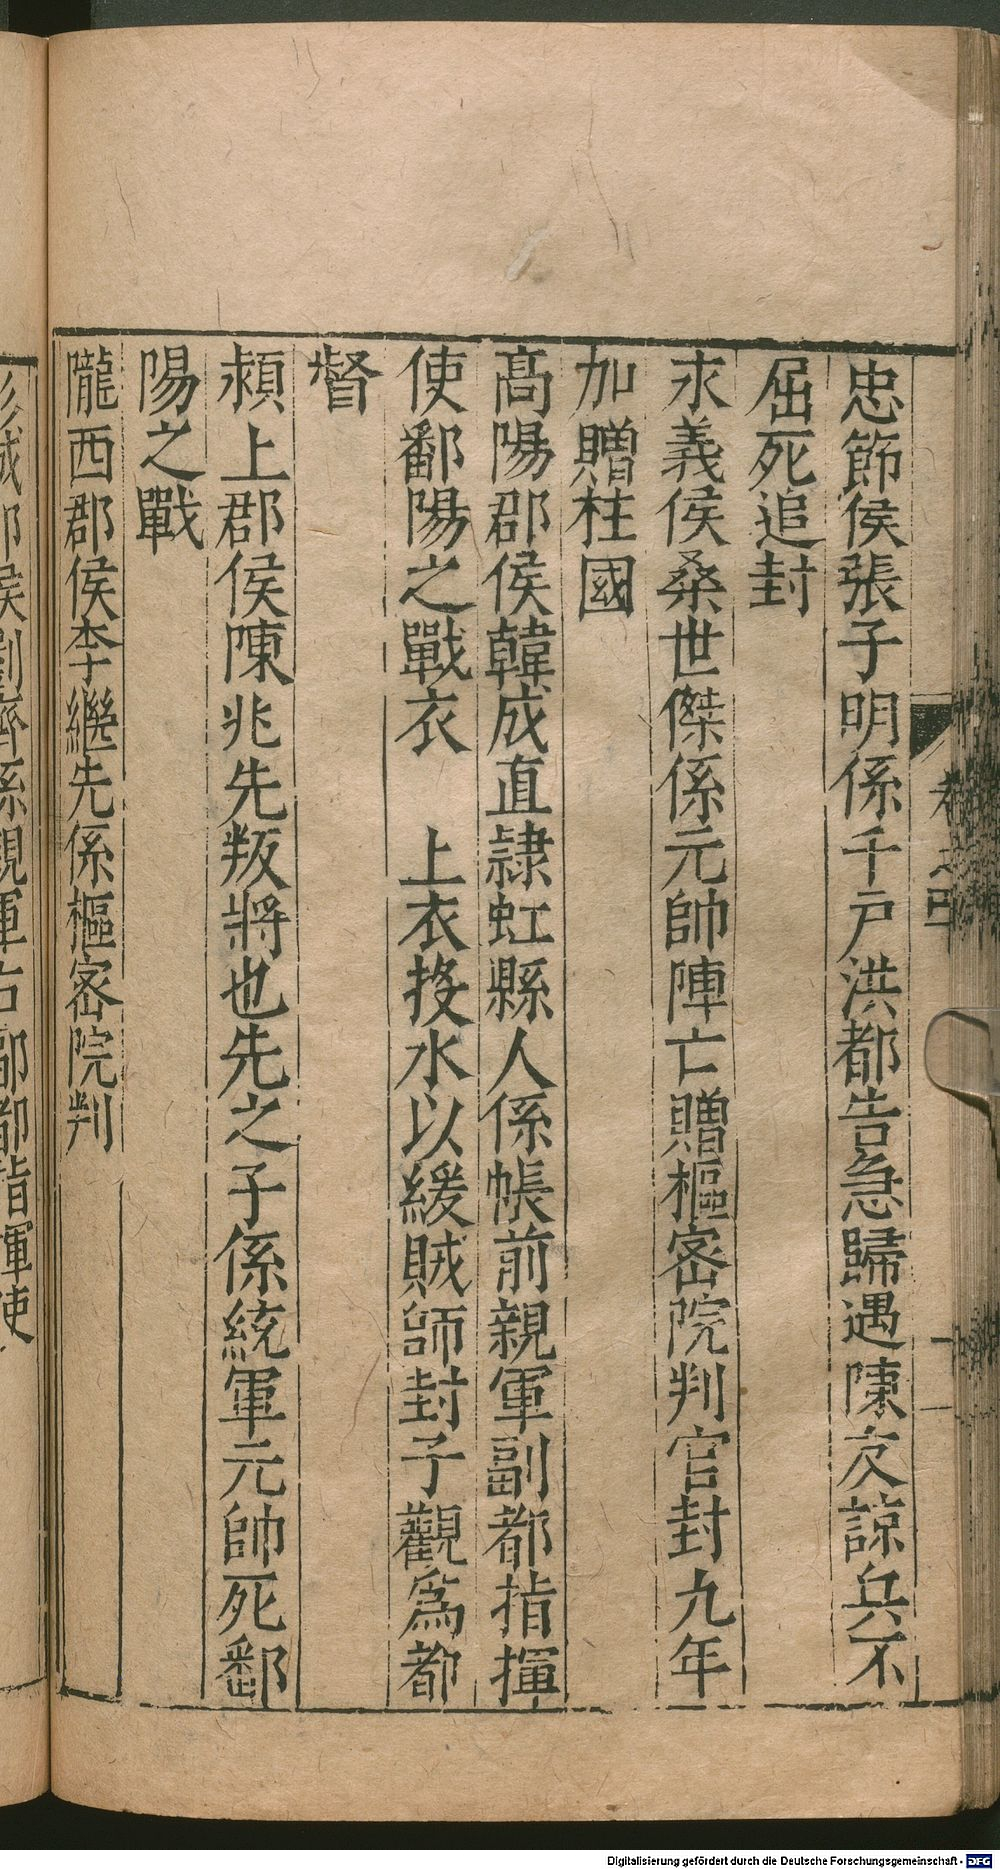 忠節侯張子明係千戶洪都告急歸遇陳友諒兵不
屈死追封
永義侯桑世傑係元帥陣亡贈樞密院判官封九年
加贈柱國
高陽郡侯韓成直隸虹縣人係帳前親軍副都指揮
使鄱陽之戰衣　上衣投水以緩賊師封子觀爲都
督
潁上郡侯陳兆先叛將也先之子係統軍元帥死鄱
陽之戰
隴西郡侯李繼先係樞密院判
郡侯劉齊係親軍右都指揮使
卷之四
Digitalisierung gefördert durch die Deutsche Forschungsgemeinschaft - DFG